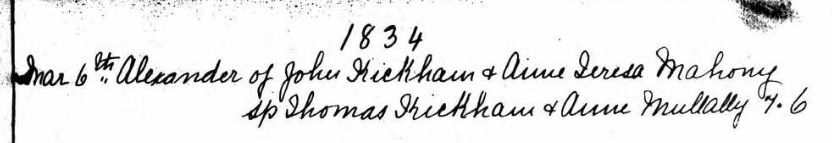 1834
Mar 6th. Alexander of John Kickham & Anne Teresa Mahony
sp Thomas Kickham & Anne Mullally 7. 6